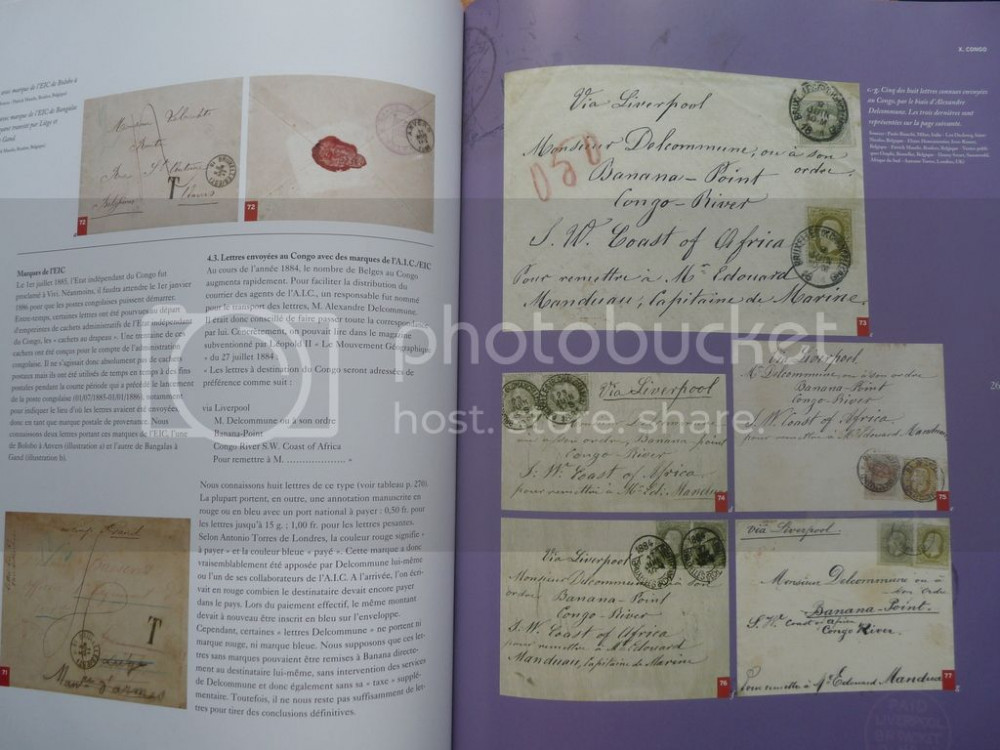 avec marque de l'EIC de Bolobo à
avec marque de l'EIC de Bangalas
transit par Liège et
à Gand
72
72
Marques de l'EIC
Le 1er juillet 1885, l'Etat indépendant du Congo fut
proclamé à Vivi. Néanmoins, il faudra attendre le 1er janvier
1886 pour que les postes congolaises puissent démarrer.
Entre-temps, certaines lettres ont été pourvues au départ
d'empreintes de cachets administratifs de l'Etat indépendant
du Congo, les « cachets au drapeau ». Une trentaine de ces
cachets ont été conçus pour le compte de l'administration
congolaise. Il ne s'agissait donc absolument pas de cachets
postaux mais ils ont été utilisés de temps en temps à des fins
postales pendant la courte période qui a précédé le lancement
de la poste congolaise (01/07/1885-01/01/1886), notamment
pour indiquer le lieu d'où les lettres avaient été envoyées,
donc en tant que marque postale de provenance. Nous
connaissons deux lettres portant ces marques de l'EIC, l'une
de Bolobo à Anvers (illustration a) et l'autre de Bangalas à
Gand (illustration b).
T
71
4.3. Lettres envoyées au Congo avec des marques de l'A.I.C./EIC
Au cours de l'année 1884, le nombre de Belges au Congo
augmenta rapidement. Pour faciliter la distribution du
courrier des agents de l'A.I.C., un responsable fut nommé
pour le transport des lettres, M. Alexandre Delcommune.
Il était donc conseillé de faire passer toute la correspondance
par lui. Concrètement, on pouvait lire dans le magazine
subventionné par Léopold II « Le Mouvement Géographique
» du 27 juillet 1884 :
« Les lettres à destination du Congo seront adressées de
préférence comme suit :
via Liverpool
M. Delcommune ou a son ordre
Banana-Point
Congo River S.W. Coast of Africa
Pour remettre à M. ………………… »
Nous connaissons huit lettres de ce type (voir tableau p. 276).
La plupart portent, en outre, une annotation manuscrite en
rouge ou en bleu avec un port national à payer : 0,50 fr. pour
les lettres jusqu'à 15 g. ; 1,00 fr. pour les lettres pesantes.
Selon Antonio Torres de Londres, la couleur rouge signifie «
à payer » et la couleur bleue « payé ». Cette marque a donc
vraisemblablement été apposée par Delcommune lui-même
ou l'un de ses collaborateurs de l'A.I.C. A l'arrivée, l'on écri-
vait en rouge combien le destinataire devait encore payer
dans le pays. Lors du paiement effectif, le même montant
devait à nouveau être inscrit en bleu sur l'enveloppe.
Cependant, certaines « lettres Delcommune » ne portent ni
marque rouge, ni marque bleue. Nous supposons que ces let-
tres sans marques pouvaient être remises à Banana directe-
ment au destinataire lui-même, sans intervention des services
de Delcommune et donc également sans sa « taxe » supplé-
mentaire. Toutefois, il ne nous reste pas suffisamment de let-
tres pour tirer des conclusions définitives.
X. CONGO
c-g. Cinq des huit lettres connues envoyées
au Congo, par le biais d'Alexandre
Delcommune. Les trois dernières sont
représentées sur la page suivante.
Via Liverpool
050
Monsieur Delcommune, ou à son
ordre.
Banana-Point
Congo-River
S. W. Coast of Africa
Pour remettre à Mr. Edouard
Manduau, Capitaine de Marine.
73
Via Liverpool
ou à son ordre, Banana Point
Congo River
S. W. Coast of Africa
pour remettre à Mr. Ed. Manduau
74
via Liverpool
Mr. Delcommune, ou à son ordre
Banana-Point
Congo-River
S. W. Coast of Africa
pour remettre à Mr Edouard Manduau
75
Via Liverpool
Monsieur Delcommune, ou à son
ordre
Banana-Point
Congo-River
S. W. Coast of Africa
pour remettre à Mr. Edouard
Manduau, Capitaine de Marine
76
via Liverpool.
Monsieur Delcommune ou à
son ordre
Banana-Point.
S. W. Coast of Africa
Congo River.
Pour remettre à Mr. Edouard Manduau
77
PAID
LIVERPOOL
photobucket
host. store. share.